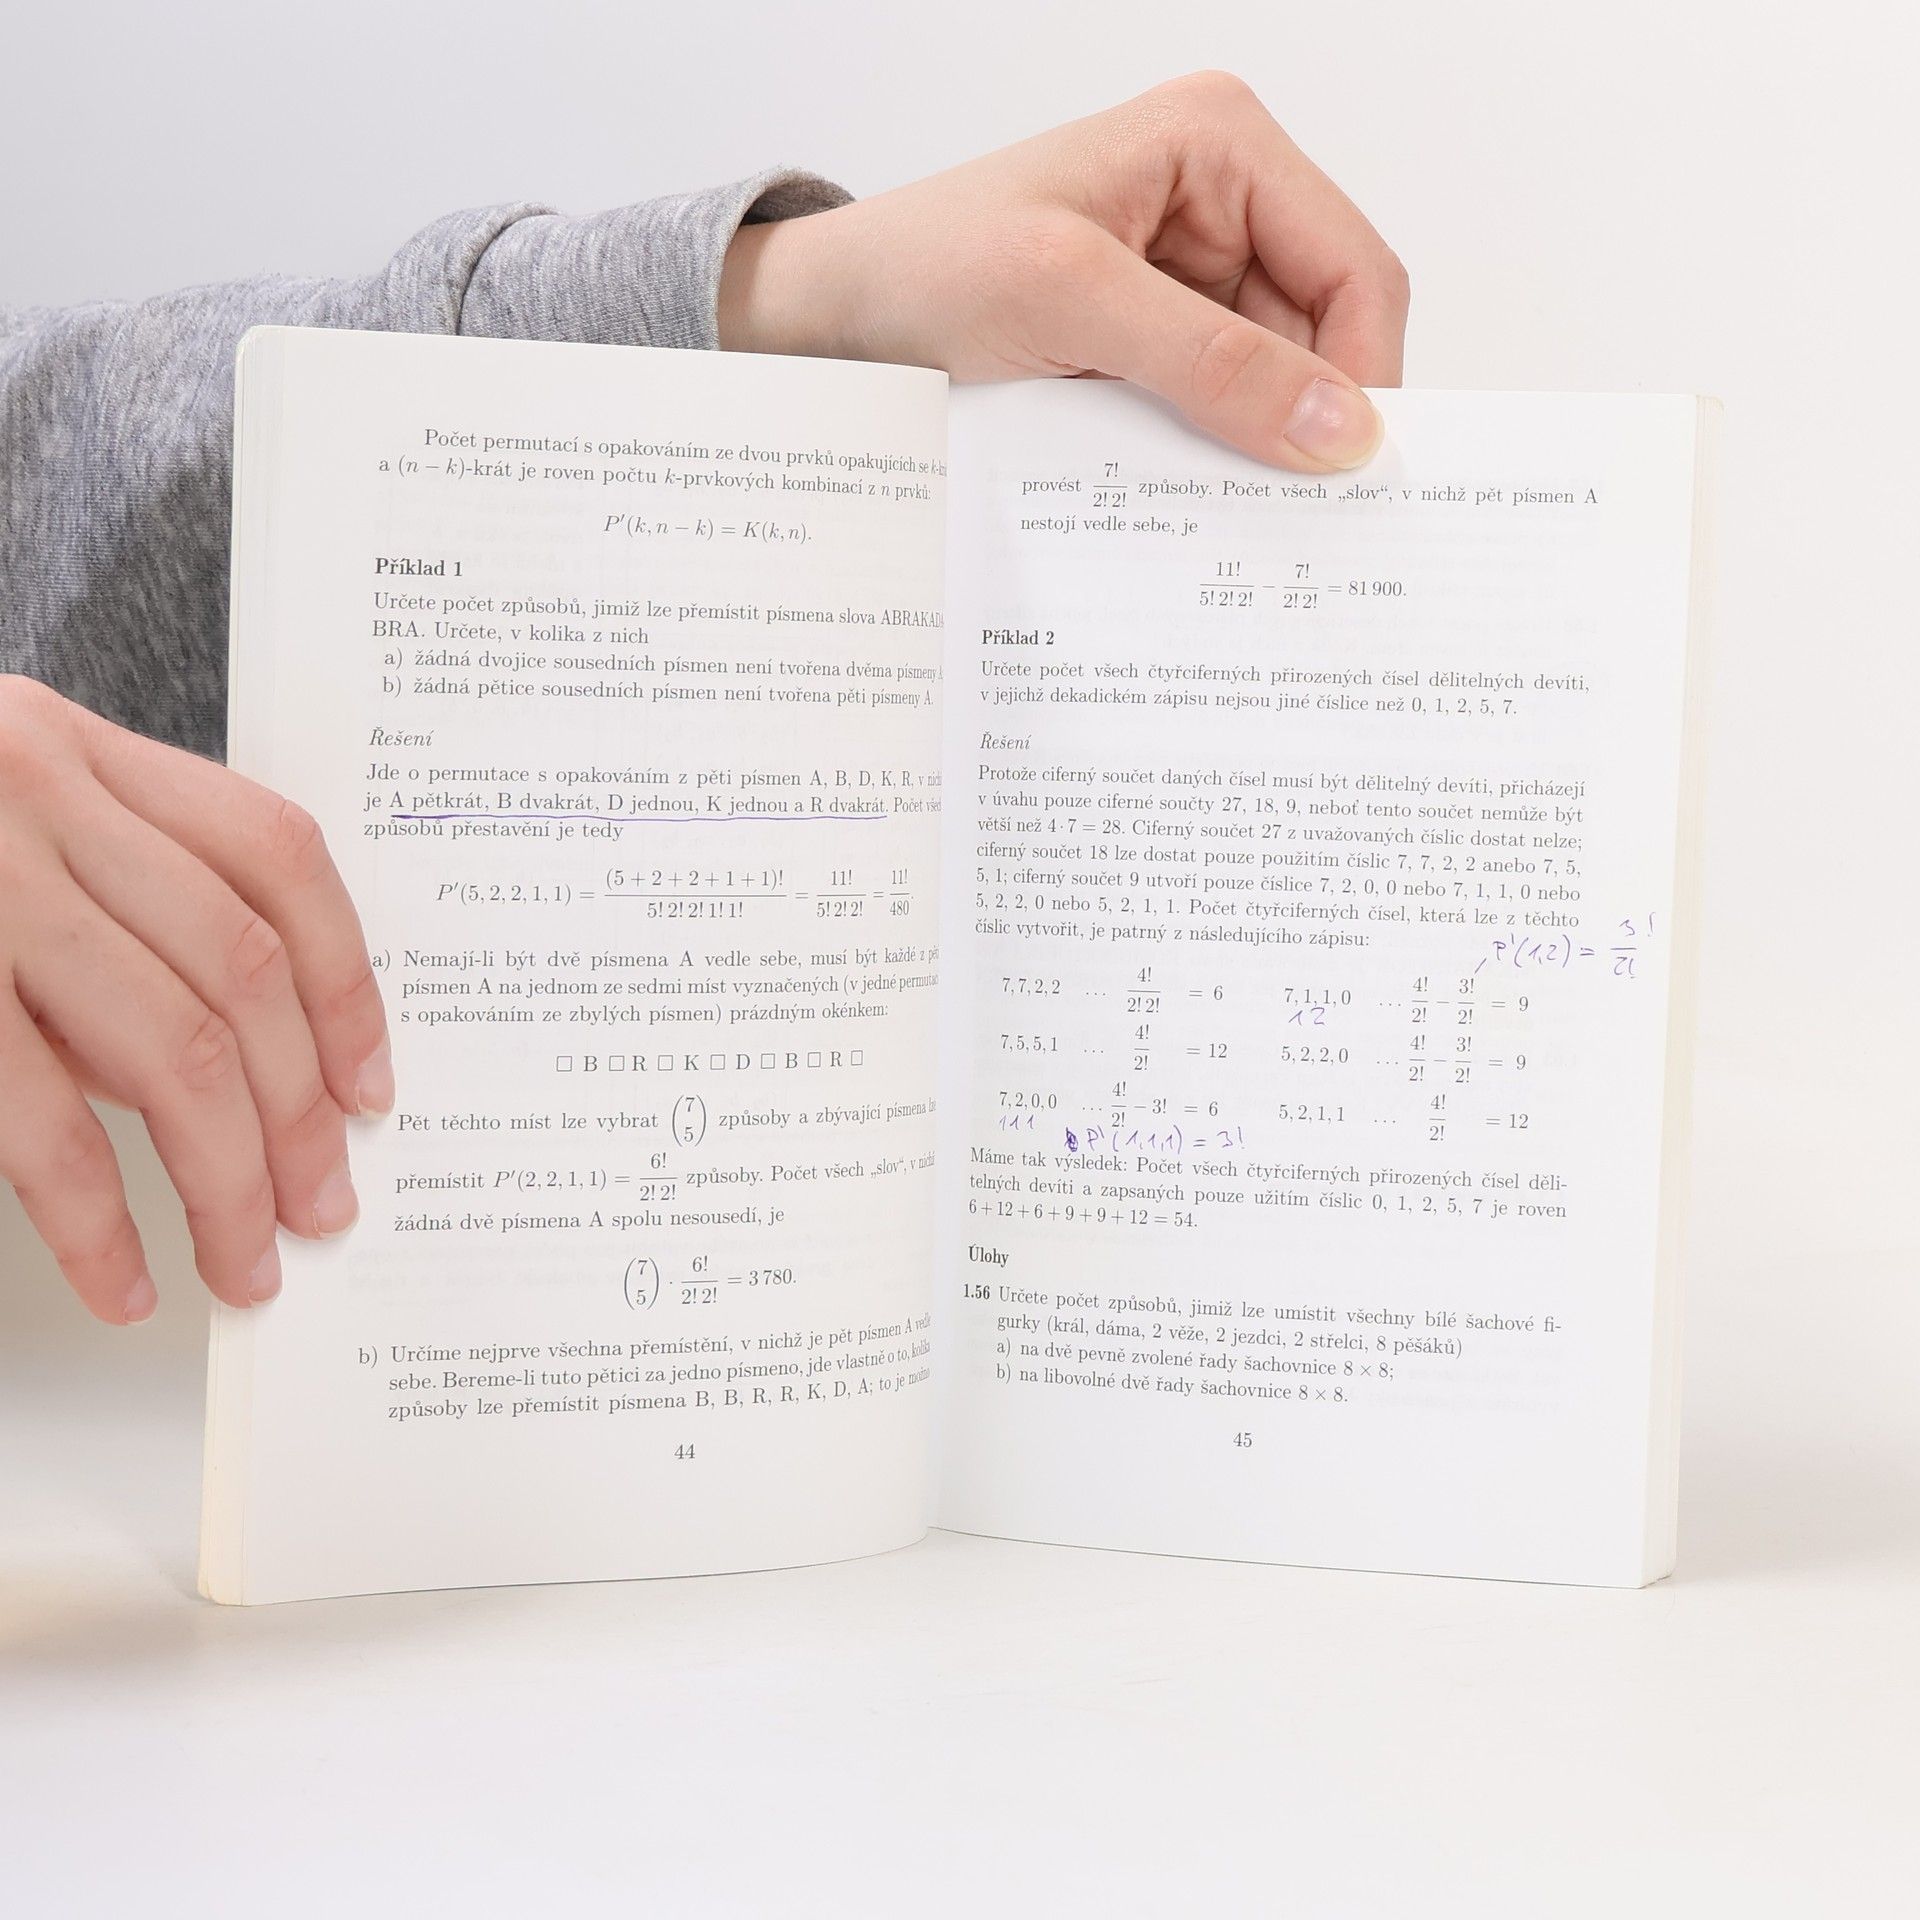 Počet permutací s opakováním ze dvou prvků opakujících se
a (n − k)-krát je roven počtu k-prvkových kombinací z n prvků:
P′(k, n − k) = K(k, n).
Příklad 1
Určete počet způsobů, jimiž lze přemístit písmena slova ABRAKADA
BRA. Určete, v kolika z nich
a) žádná dvojice sousedních písmen není tvořena dvěma písmeny
b) žádná pětice sousedních písmen není tvořena pěti písmeny A.
Řešení
Jde o permutace s opakováním z pěti písmen A, B, D, K, R, v
je A pětkrát, B dvakrát, D jednou, K jednou a R dvakrát. Počet
způsobů přestavění je tedy
P′(5, 2, 2, 1, 1) = (5 + 2 + 2 + 1 + 1)! / 5! 2! 2! 1! 1! = 11! / 5! 2! 2! = 11! / 480.
a) Nemají-li být dvě písmena A vedle sebe, musí být každé z
písmen A na jednom ze sedmi míst vyznačených (v jedné
s opakováním ze zbylých písmen) prázdným okénkem:
□ B □ R □ K □ D □ B □ R □
Pět těchto míst lze vybrat (7 5) způsoby a zbývající písmena
přemístit P′(2, 2, 1, 1) = 6! / 2! 2! způsoby. Počet všech „slov“, v
žádná dvě písmena A spolu nesousedí, je
(7 5) · 6! / 2! 2! = 3 780.
b) Určíme nejprve všechna přemístění, v nichž je pět písmen A
sebe. Bereme-li tuto pětici za jedno písmeno, jde vlastně o to,
způsoby lze přemístit písmena B, B, R, R, K, D, A; to je
44
provést 7! / 2! 2! způsoby. Počet všech „slov“, v nichž pět písmen A
nestojí vedle sebe, je
11! / 5! 2! 2! − 7! / 2! 2! = 81 900.
Příklad 2
Určete počet všech čtyřciferných přirozených čísel dělitelných devíti,
v jejichž dekadickém zápisu nejsou jiné číslice než 0, 1, 2, 5, 7.
Řešení
Protože ciferný součet daných čísel musí být dělitelný devíti, přicházejí
v úvahu pouze ciferné součty 27, 18, 9, neboť tento součet nemůže být
větší než 4 · 7 = 28. Ciferný součet 27 z uvažovaných číslic dostat nelze;
ciferný součet 18 lze dostat pouze použitím číslic 7, 7, 2, 2 anebo 7, 5,
5, 1; ciferný součet 9 utvoří pouze číslice 7, 2, 0, 0 nebo 7, 1, 1, 0 nebo
5, 2, 2, 0 nebo 5, 2, 1, 1. Počet čtyřciferných čísel, která lze z těchto
číslic vytvořit, je patrný z následujícího zápisu:
P'(1,2) = 3! / 2!
7, 7, 2, 2 ... 4! / 2! 2! = 6 7, 1, 1, 0 ... 4! / 2! − 3! / 2! = 9
1 2
7, 5, 5, 1 ... 4! / 2! = 12 5, 2, 2, 0 ... 4! / 2! − 3! / 2! = 9
7, 2, 0, 0 ... 4! / 2! − 3! = 6 5, 2, 1, 1 ... 4! / 2! = 12
1 1 1 P' (1,1,1) = 3!
Máme tak výsledek: Počet všech čtyřciferných přirozených čísel děli-
telných devíti a zapsaných pouze užitím číslic 0, 1, 2, 5, 7 je roven
6 + 12 + 6 + 9 + 9 + 12 = 54.
Úlohy
1.56 Určete počet způsobů, jimiž lze umístit všechny bílé šachové fi-
gurky (král, dáma, 2 věže, 2 jezdci, 2 střelci, 8 pěšáků)
a) na dvě pevně zvolené řady šachovnice 8 × 8;
b) na libovolné dvě řady šachovnice 8 × 8.
45